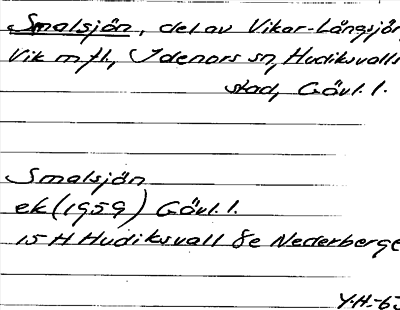 Smalsjön, del av Vikar-Långsjön,
Vik m fl., Idenors sn, Hudiksvalls
stad, Gävl. l.
Smalsjön
ek (1959) Gävl. l.
15 H Hudiksvall 8e Nederberge
Y.H.-63